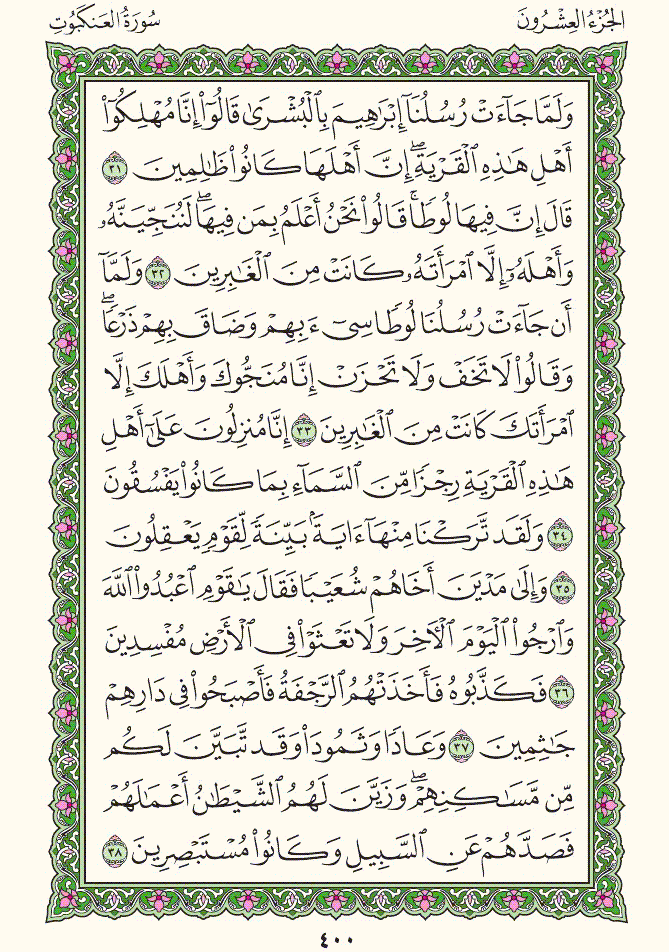 الجُزْءُ العِشْرُونَ
سُورَةُ العَنكَبُوتِ
وَلَمَّا جَآءَتْ رُسُلُنَآ إِبْرَٰهِيمَ بِٱلْبُشْرَىٰ قَالُوٓاْ إِنَّا مُهْلِكُوٓاْ
أَهْلِ هَٰذِهِ ٱلْقَرْيَةِۖ إِنَّ أَهْلَهَا كَانُواْ ظَٰلِمِينَ ٣١
قَالَ إِنَّ فِيهَا لُوطٗاۚ قَالُواْ نَحْنُ أَعْلَمُ بِمَن فِيهَاۖ لَنُنَجِّيَنَّهُۥ
وَأَهْلَهُۥٓ إِلَّا ٱمْرَأَتَهُۥ كَانَتْ مِنَ ٱلْغَٰبِرِينَ ٣٢ وَلَمَّآ
أَن جَآءَتْ رُسُلُنَا لُوطٗا سِيٓءَ بِهِمْ وَضَاقَ بِهِمْ ذَرْعٗاۖ
وَقَالُواْ لَا تَخَفْ وَلَا تَحْزَنْ إِنَّا مُنَجُّوكَ وَأَهْلَكَ إِلَّا
ٱمْرَأَتَكَ كَانَتْ مِنَ ٱلْغَٰبِرِينَ ٣٣ إِنَّا مُنزِلُونَ عَلَىٰٓ أَهْلِ
هَٰذِهِ ٱلْقَرْيَةِ رِجْزٗا مِّنَ ٱلسَّمَآءِ بِمَا كَانُواْ يَفْسُقُونَ
٣٤ وَلَقَد تَّرَكْنَا مِنْهَآ ءَايَةَۢ بَيِّنَةٗ لِّقَوْمٖ يَعْقِلُونَ
٣٥ وَإِلَىٰ مَدْيَنَ أَخَاهُمْ شُعَيْبٗا فَقَالَ يَٰقَوْمِ ٱعْبُدُواْ ٱللَّهَ
وَٱرْجُواْ ٱلْيَوْمَ ٱلْأٓخِرَ وَلَا تَعْثَوْاْ فِي ٱلْأَرْضِ مُفْسِدِينَ
٣٦ فَكَذَّبُوهُ فَأَخَذَتْهُمُ ٱلرَّجْفَةُ فَأَصْبَحُواْ فِي دَارِهِمْ
جَٰثِمِينَ ٣٧ وَعَادٗا وَثَمُودَاْ وَقَد تَّبَيَّنَ لَكُم
مِّن مَّسَٰكِنِهِمْۖ وَزَيَّنَ لَهُمُ ٱلشَّيْطَٰنُ أَعْمَٰلَهُمْ
فَصَدَّهُمْ عَنِ ٱلسَّبِيلِ وَكَانُواْ مُسْتَبْصِرِينَ ٣٨
٤٠٠